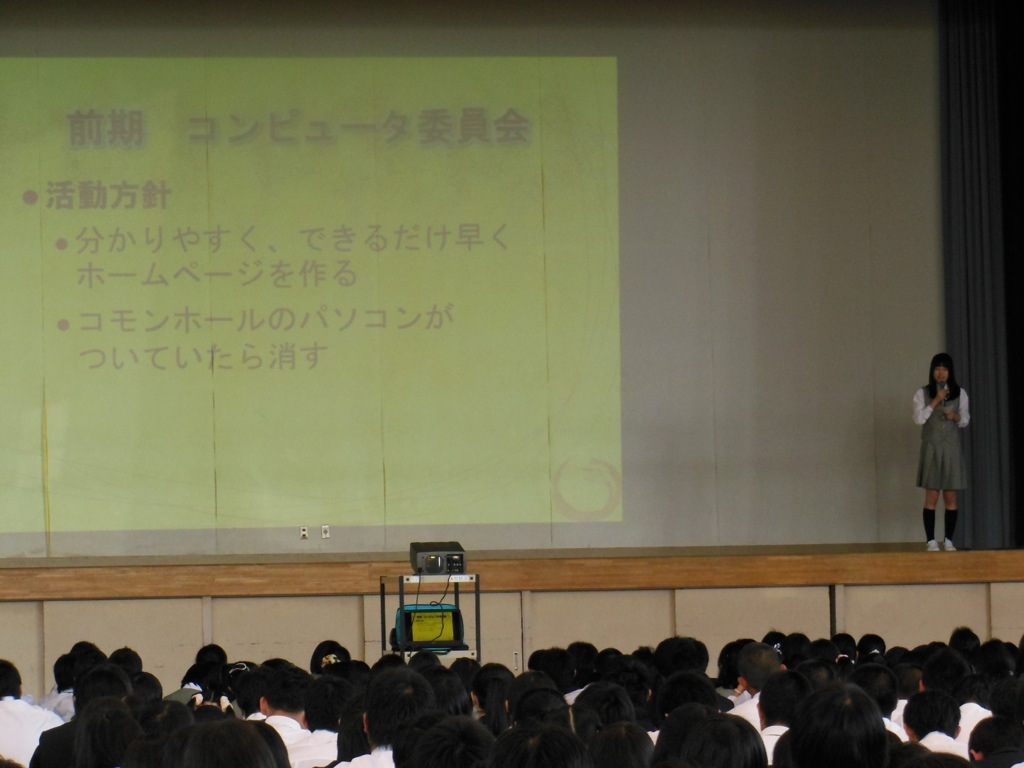 前期　コンピュータ委員会
●活動方針
●分かりやすく、できるだけ早く
ホームページを作る
●コモンホールのパソコンが
ついていたら消す